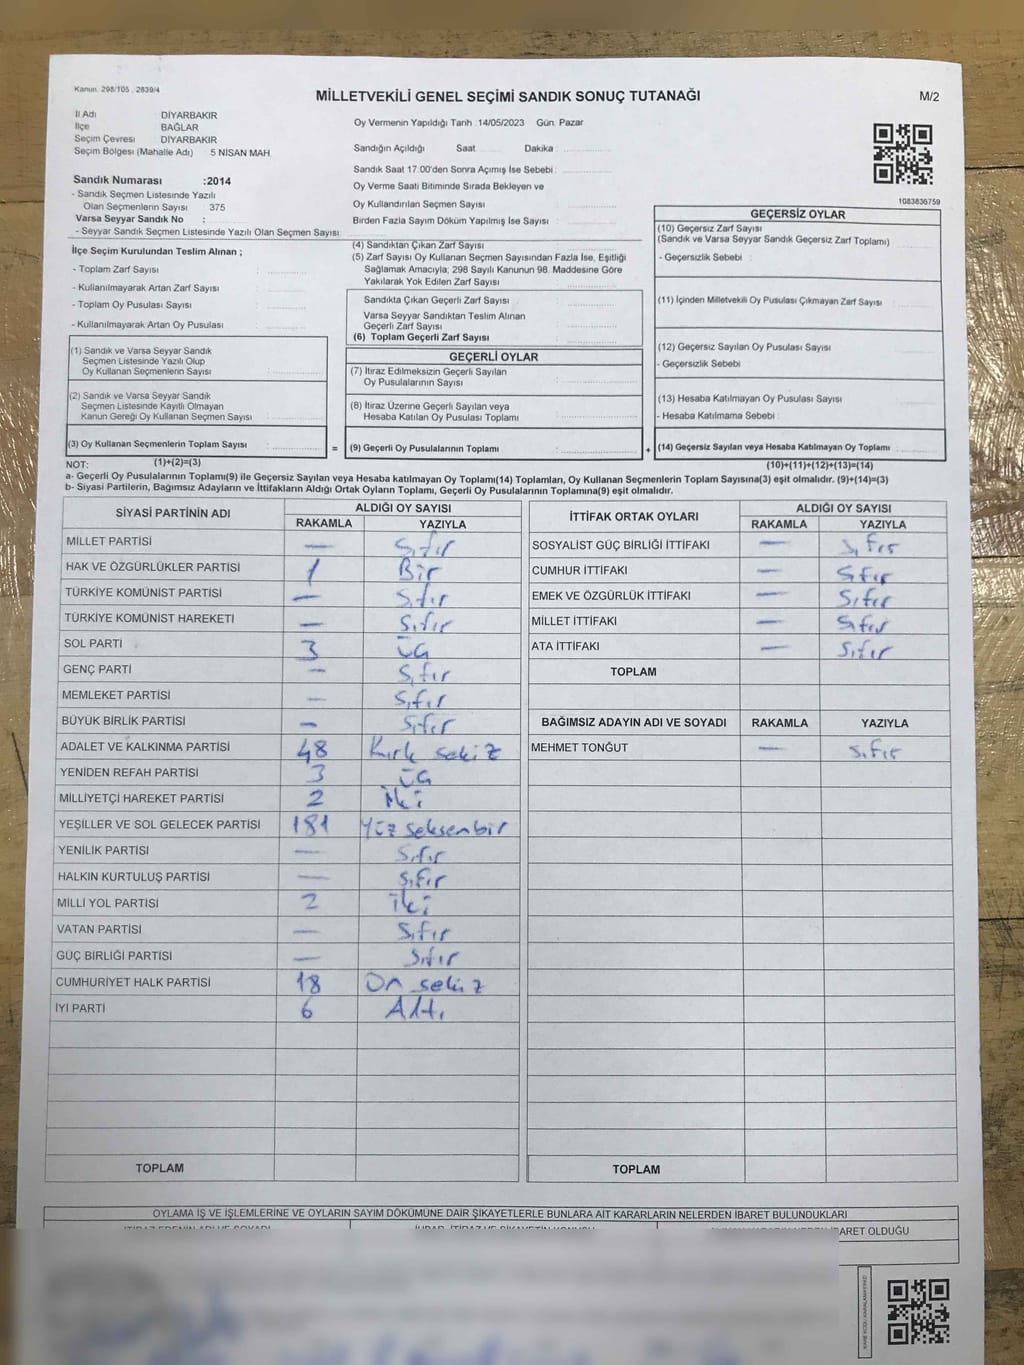 Kanun. 298/105 , 2839/4
MİLLETVEKİLİ GENEL SEÇİMİ SANDIK SONUÇ TUTANAĞI
M/2
İl Adı DİYARBAKIR
İlçe BAĞLAR
Seçim Çevresi DİYARBAKIR
Seçim Bölgesi (Mahalle Adı) 5 NİSAN MAH.
Sandık Numarası :2014
- Sandık Seçmen Listesinde Yazılı
Olan Seçmenlerin Sayısı 375
Varsa Seyyar Sandık No :
- Seyyar Sandık Seçmen Listesinde Yazılı Olan Seçmen Sayısı:
Oy Vermenin Yapıldığı Tarih :14/05/2023 Gün. Pazar
Sandığın Açıldığı Saat Dakika :
Sandık Saat 17:00'den Sonra Açımış İse Sebebi :
Oy Verme Saati Bitiminde Sırada Bekleyen ve
Oy Kullandırılan Seçmen Sayısı :
Birden Fazla Sayım Döküm Yapılmış İse Sayısı :
1083836759
İlçe Seçim Kurulundan Teslim Alınan ;
- Toplam Zarf Sayısı :
- Kullanılmayarak Artan Zarf Sayısı :
- Toplam Oy Pusulası Sayısı :
- Kullanılmayarak Artan Oy Pusulası :
(1) Sandık ve Varsa Seyyar Sandık
Seçmen Listesinde Yazılı Olup
Oy Kullanan Seçmenlerin Sayısı :
(2) Sandık ve Varsa Seyyar Sandık
Seçmen Listesinde Kayıtlı Olmayan
Kanun Gereği Oy Kullanan Seçmen Sayısı :
(3) Oy Kullanan Seçmenlerin Toplam Sayısı :
(1)+(2)=(3)
(4) Sandıktan Çıkan Zarf Sayısı :
(5) Zarf Sayısı Oy Kullanan Seçmen Sayısından Fazla İse, Eşitliği
Sağlamak Amacıyla; 298 Sayılı Kanunun 98. Maddesine Göre
Yakılarak Yok Edilen Zarf Sayısı :
Sandıkta Çıkan Geçerli Zarf Sayısı :
Varsa Seyyar Sandıktan Teslim Alınan
Geçerli Zarf Sayısı :
(6) Toplam Geçerli Zarf Sayısı :
GEÇERLİ OYLAR
(7) İtiraz Edilmeksizin Geçerli Sayılan
Oy Pusulalarının Sayısı :
(8) İtiraz Üzerine Geçerli Sayılan veya
Hesaba Katılan Oy Pusulası Toplamı :
= (9) Geçerli Oy Pusulalarının Toplamı :
GEÇERSİZ OYLAR
(10) Geçersiz Zarf Sayısı
(Sandık ve Varsa Seyyar Sandık Geçersiz Zarf Toplamı)
- Geçersizlik Sebebi :
(11) İçinden Milletvekili Oy Pusulası Çıkmayan Zarf Sayısı
(12) Geçersiz Sayılan Oy Pusulası Sayısı
- Geçersizlik Sebebi
(13) Hesaba Katılmayan Oy Pusulası Sayısı
- Hesaba Katılmama Sebebi :
+ (14) Geçersiz Sayılan veya Hesaba Katılmayan Oy Toplamı
(10)+(11)+(12)+(13)=(14)
NOT:
a- Geçerli Oy Pusulalarının Toplamı(9) ile Geçersiz Sayılan veya Hesaba katılmayan Oy Toplamı(14) Toplamları, Oy Kullanan Seçmenlerin Toplam Sayısına(3) eşit olmalıdır. (9)+(14)=(3)
b- Siyasi Partilerin, Bağımsız Adayların ve İttifakların Aldığı Ortak Oyların Toplamı, Geçerli Oy Pusulalarının Toplamına(9) eşit olmalıdır.
SİYASİ PARTİNİN ADI ALDIĞI OY SAYISI
RAKAMLA YAZIYLA
MİLLET PARTİSİ — Sıfır
HAK VE ÖZGÜRLÜKLER PARTİSİ 1 Bir
TÜRKİYE KOMÜNİST PARTİSİ — Sıfır
TÜRKİYE KOMÜNİST HAREKETİ — Sıfır
SOL PARTİ 3 üç
GENÇ PARTİ — Sıfır
MEMLEKET PARTİSİ — Sıfır
BÜYÜK BİRLİK PARTİSİ — Sıfır
ADALET VE KALKINMA PARTİSİ 48 Kırk sekiz
YENİDEN REFAH PARTİSİ 3 üç
MİLLİYETÇİ HAREKET PARTİSİ 2 İki
YEŞİLLER VE SOL GELECEK PARTİSİ 181 Yüz seksen bir
YENİLİK PARTİSİ — Sıfır
HALKIN KURTULUŞ PARTİSİ — Sıfır
MİLLİ YOL PARTİSİ 2 İki
VATAN PARTİSİ — Sıfır
GÜÇ BİRLİĞİ PARTİSİ — Sıfır
CUMHURİYET HALK PARTİSİ 18 On sekiz
İYİ PARTİ 6 Altı
TOPLAM
İTTİFAK ORTAK OYLARI ALDIĞI OY SAYISI
RAKAMLA YAZIYLA
SOSYALİST GÜÇ BİRLİĞİ İTTİFAKI — Sıfır
CUMHUR İTTİFAKI — Sıfır
EMEK VE ÖZGÜRLÜK İTTİFAKI — Sıfır
MİLLET İTTİFAKI — Sıfır
ATA İTTİFAKI — Sıfır
TOPLAM
BAĞIMSIZ ADAYIN ADI VE SOYADI RAKAMLA YAZIYLA
MEHMET TONĞUT — Sıfır
TOPLAM
OYLAMA İŞ VE İŞLEMLERİNE VE OYLARIN SAYIM DÖKÜMÜNE DAİR ŞİKAYETLERLE BUNLARA AİT KARARLARIN NELERDEN İBARET BULUNDUKLARI
İBARET OLDUĞU